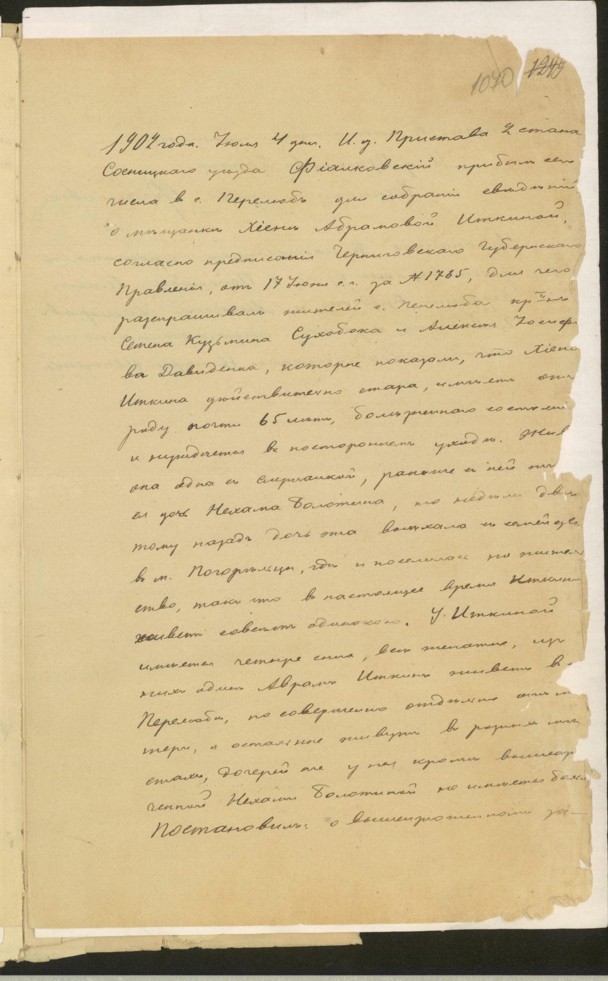 1070 1249
1902 года. Июля 4 дня. И. д. Пристава 2 стана
Сосницкаго уезда Фіалковскій прибылъ сего
числа в с. Перелюбъ для собранія свѣдѣній
о мѣщанкѣ Хіени Абрамовой Иткиной,
согласно предписанія Черниговскаго Губернскаго
Правленія, отъ 17 Июня с. г. за № 1765, для чего
разспрашивалъ жителей с. Перелюба
Семена Кузьмина Сухобока и Алексѣя Іосифо
ва Давиденка, которые показали, что Хіена
Иткина дѣйствительно стара, имѣетъ отъ
роду почти 65 лѣтъ, болѣзненнаго состоянія
и нуждается въ постороннемъ уходѣ. Жив
она одна съ служанкой, раньше съ ней
ея дочь Нехама Болотина, но недѣли двѣ
тому назадъ дочь эта выѣхала съ семейст
в м. Погорѣльцы, гдѣ и поселилась на житель
ство, такъ что въ настоящее время Иткина
живетъ совсѣмъ одинокою. У Иткиной
имѣется четыре сына, всѣ женатые, изъ
нихъ одинъ Аврамъ Иткинъ живетъ въ
Перелюбѣ, но совершенно отдѣльно отъ ма
тери, а остальные живутъ въ разныхъ мѣ
стахъ, дочерей же у нея кромѣ вышеозна
ченной Нехамы Болотиной не имѣется болѣе
Постановилъ: о вышеизложенномъ за-